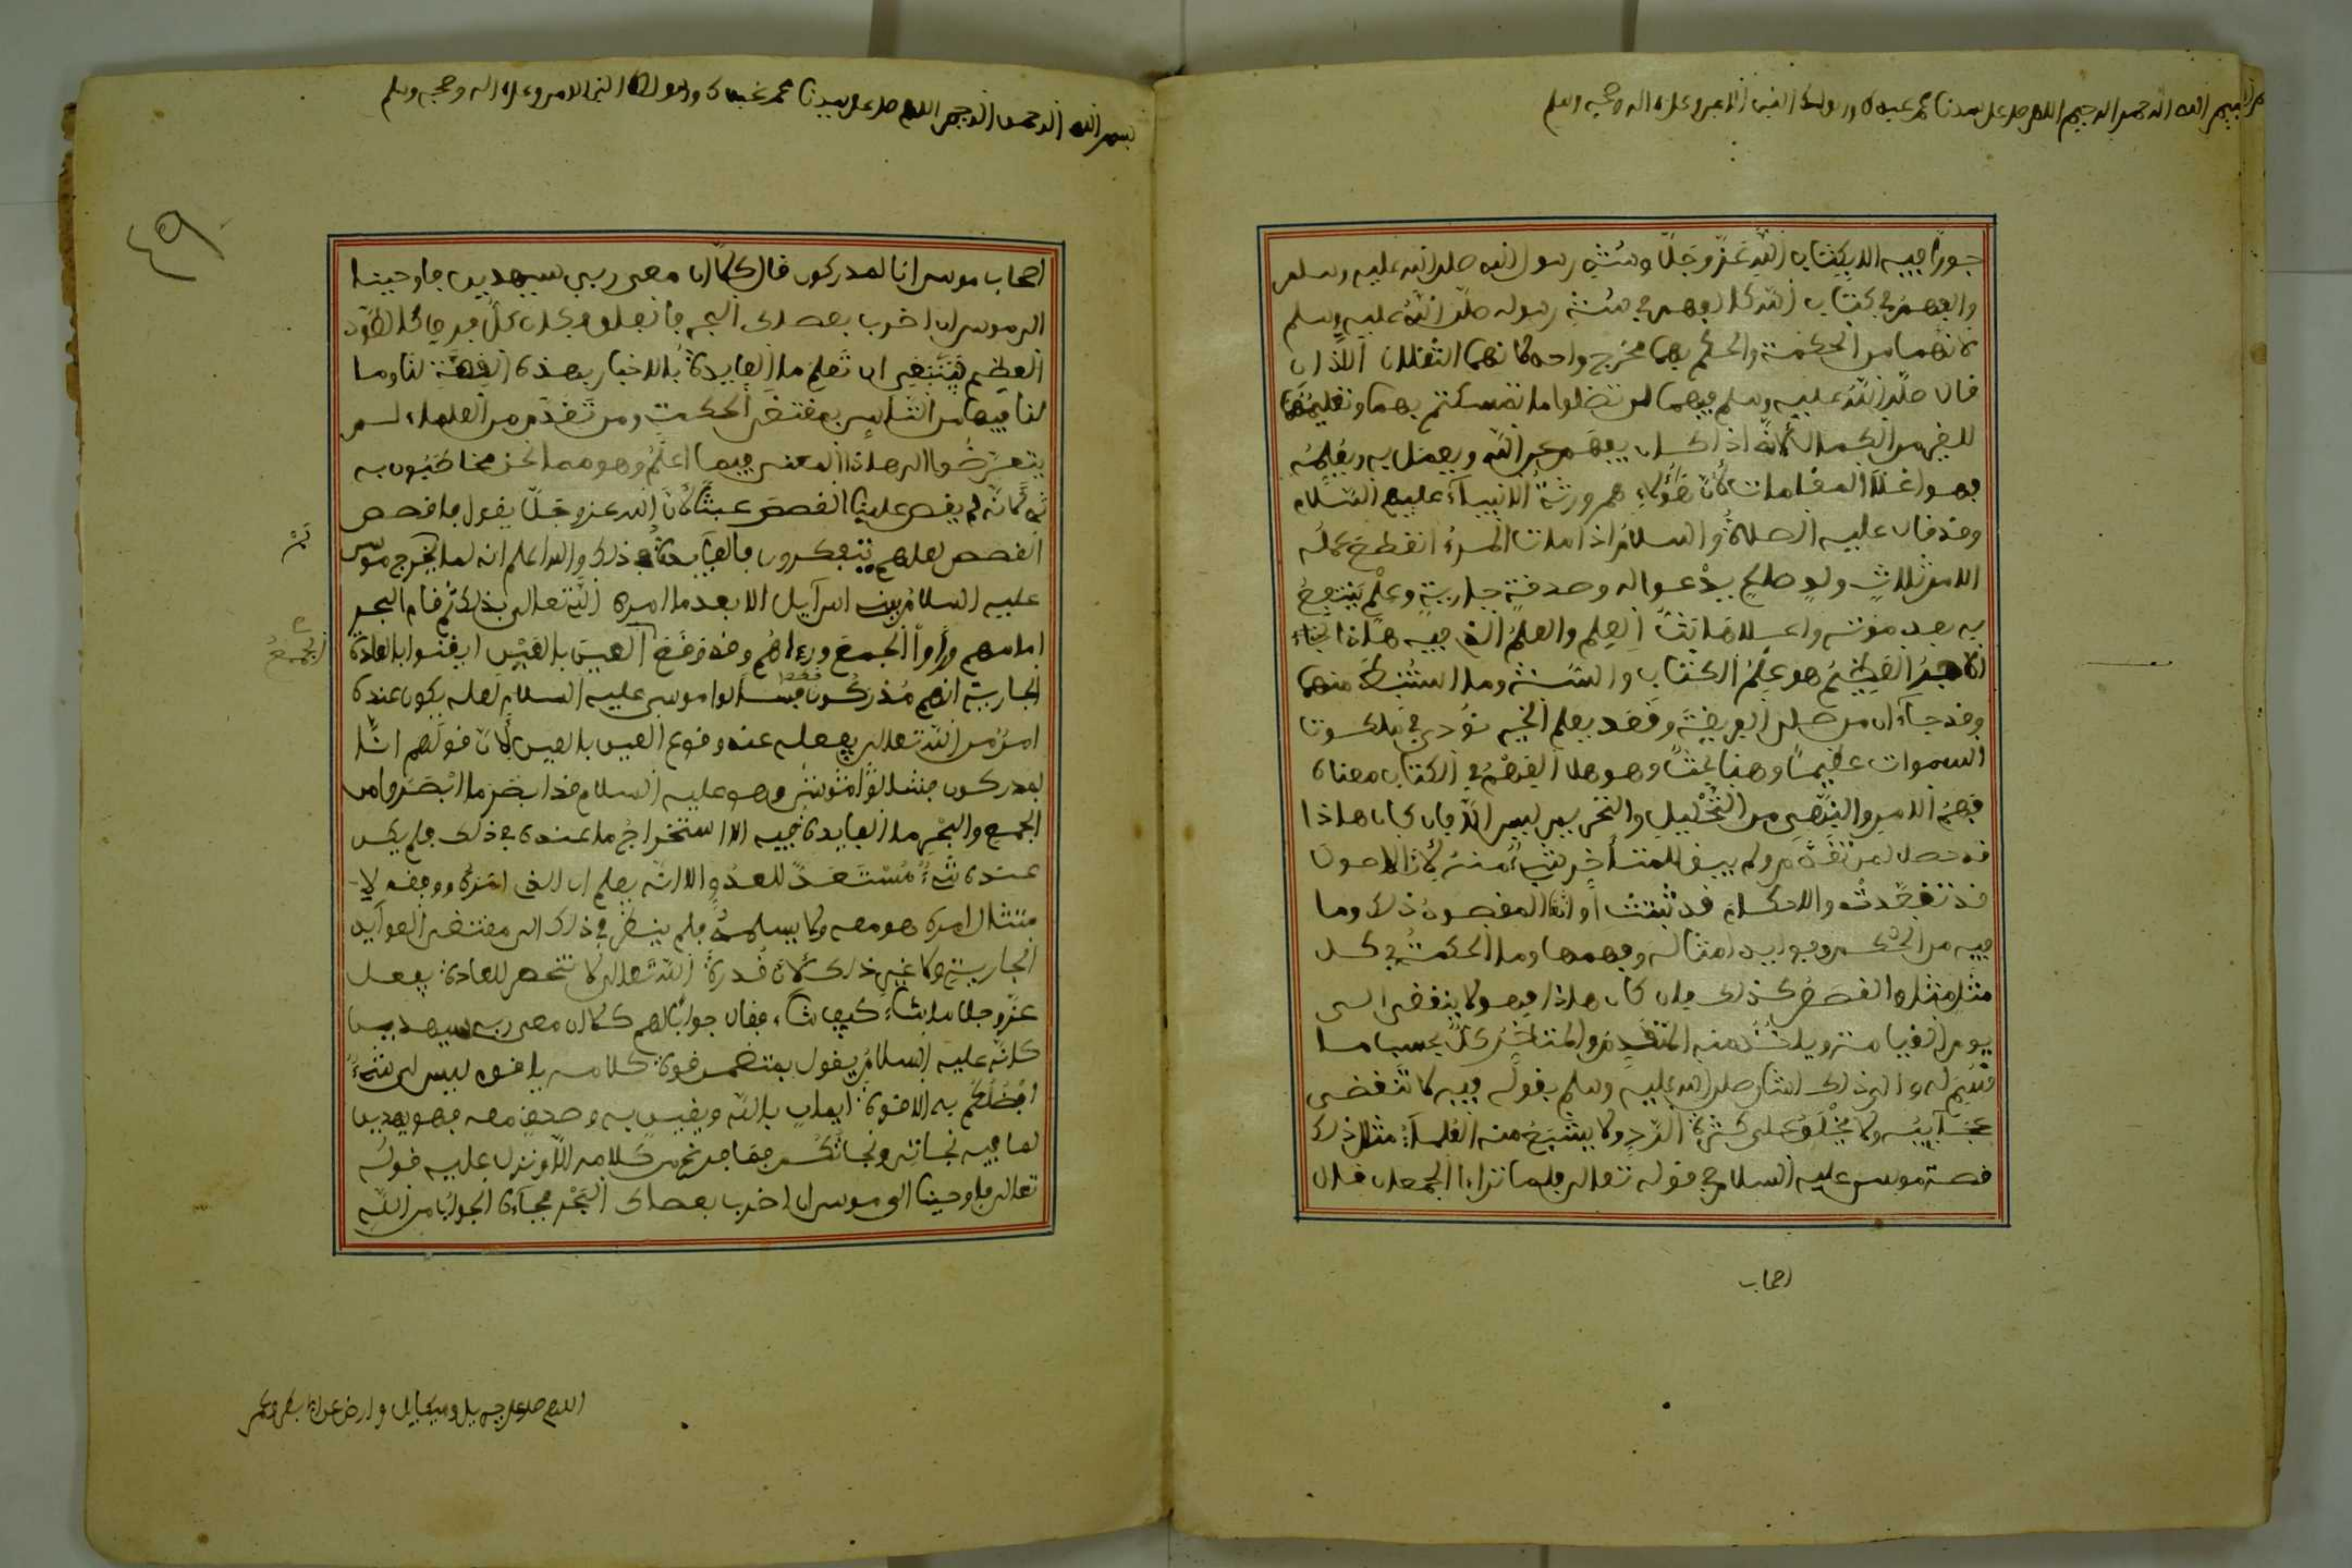 بسم الله الرحمن الرحيم اللهم صل على سيدنا محمد عبدك ورسولك النبي الامي وعلى اله وصحبه وسلم
جورا فيه الا بكتاب الله عز وجل وسنة رسول الله صلى الله عليه وسلم
والفهم في كتاب الله كالفهم في سنة رسوله صلى الله عليه وسلم
لانهما من الحكمة والحكم بهما مخرج واحد كانهما الثقلان اللذان
قال صلى الله عليه وسلم فيهما لن تضلوا ما تمسكتم بهما وتعليمها
للغير من الكمال لانه اذا كان يفهم عن الله ويعمل به ويعلمه
فهو اعلا المقامات لان هؤلاء هم ورثة الانبياء عليهم السلام
وقد قال عليه الصلاة والسلام اذا مات المرء انقطع عمله
الا من ثلاث ولد صالح يدعو اله وصدقة جارية وعلم ينتفع
به بعد موته واعلا هاته العلم والعلم الذي فيه هذا
الاجر العظيم هو علم الكتاب والسنة وما استنبط منهما
وقد جاء ان من صلى الفريضة وقعد يعلم الخير نودي في ملكوت
السموات عظيما وهنا بحث وهو هل الفهم في الكتاب معناه
فهم الامر والنهي من التحليل والتحريم ليس الا فان كان هاذا
قد حصل لمن تقدم ولم يبق للمتاخر شيء منه لان الاصول
قد تقعدت والاحكام قد ثبتت او المقصود ذلك وما
فيه من الحكم وفوايد امثاله وفهمها وما الحكمة في كل
مثل مثل والقصص كذلك فان كان هاذا فهو لا ينقضي الى
يوم القيامة وياخذ منه المتقدم والمتاخر كل بحسب ما
قسم له والى ذلك اشار صلى الله عليه وسلم بقوله فيه لا تنقضي
عجائبه ولا يخلق على كثرة الرد ولا يشبع منه العلماء مثال ذلك
قصة موسى عليه السلام في قوله تعالى فلما تراءا الجمعان قال
اصحاب
بسم الله الرحمن الرحيم اللهم صل على سيدنا محمد عبدك ورسولك النبي الامي وعلى اله وصحبه وسلم
٤٩
اصحاب موسى انا لمدركون قال كلا ان معي ربي سيهدين فاوحينا
الى موسى ان اضرب بعصاك البحر فانفلق فكان كل فرق كالطود
العظيم فينبغي ان تعلم ما الفايدة بالاخبار بهذه القصة لنا وما
لنا فيها من التاسي بمقتضى الحكمة ومن تقدم من العلماء لم
يتعرضوا الى هاذا المعنى فيما اعلم وهو مما نحن مخاطبون به
لانه لم يقص علينا القصص عبثا لان الله عز وجل يقول فاقصص
القصص لعلهم يتفكرون فالفايدة في ذلك والله اعلم انه لما خرج موسى
عليه السلام ببني اسرآيل الا بعد ما امره الله تعالى بذلك ثم قام البحر
امامهم وراوا الجمع وراءهم وقد وقع العين بالعين ايقنوا بالعادة
الجمع
الجارية انهم مدركون فسالوا موسى عليه السلام لعله يكون عنده
امر من الله تعالى يفعله عند وقوع العين بالعين لان قولهم انا
لمدركون وهو عليه السلام قد ابصر ما ابصروا من
الجمع والبحر ما الفايدة فيه الا استخراج ما عنده في ذلك فلم يكن
عنده شيء مستعد للعدو الا انه يعلم ان الذي امره ووفقه لا
متثال امره هو معه ولا يسلمه فلم ينظر في ذلك الى مقتضى العوآيد
الجارية ولا غير ذلك لان قدرة الله تعالى لا تنحصر للعادة يفعل
عز وجل ما شاء كيف شاء فقال جوابا لهم كلا ان معي ربي سيهدين
كانه عليه السلام يقول بمتضمن قوة كلامه يا قوم ليس لي شيء
افضلكم به الا قوة ايمان بالله ويقين به وصدق معه فهو يهدين
لما فيه نجاتي ونجاتكم فما فرغ من كلامه الا ونزل عليه قوله
تعالى فاوحينا الى موسى ان اضرب بعصاك البحر فجاءه الجواب من الله
اللهم صل على جبريل وميكايل وارض عن ابي بكر وعمر